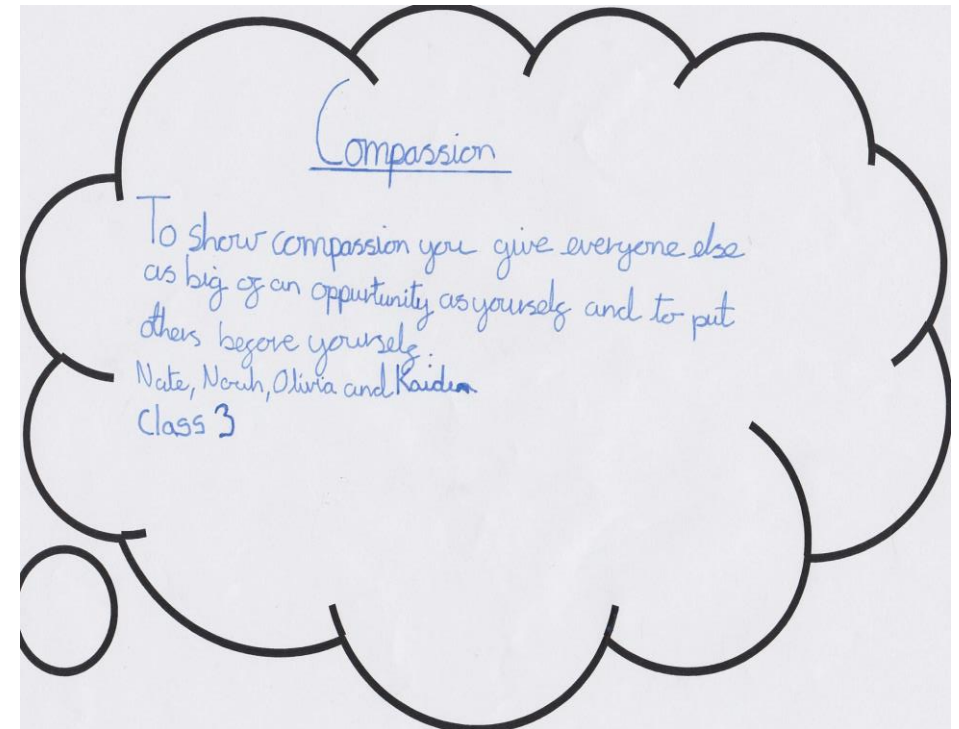 Compassion
To show compassion you give everyone else
as big of an oppurtunity as yourself and to put
others before yourself.
Nate, Noah, Olivia and Kaiden
Class 3